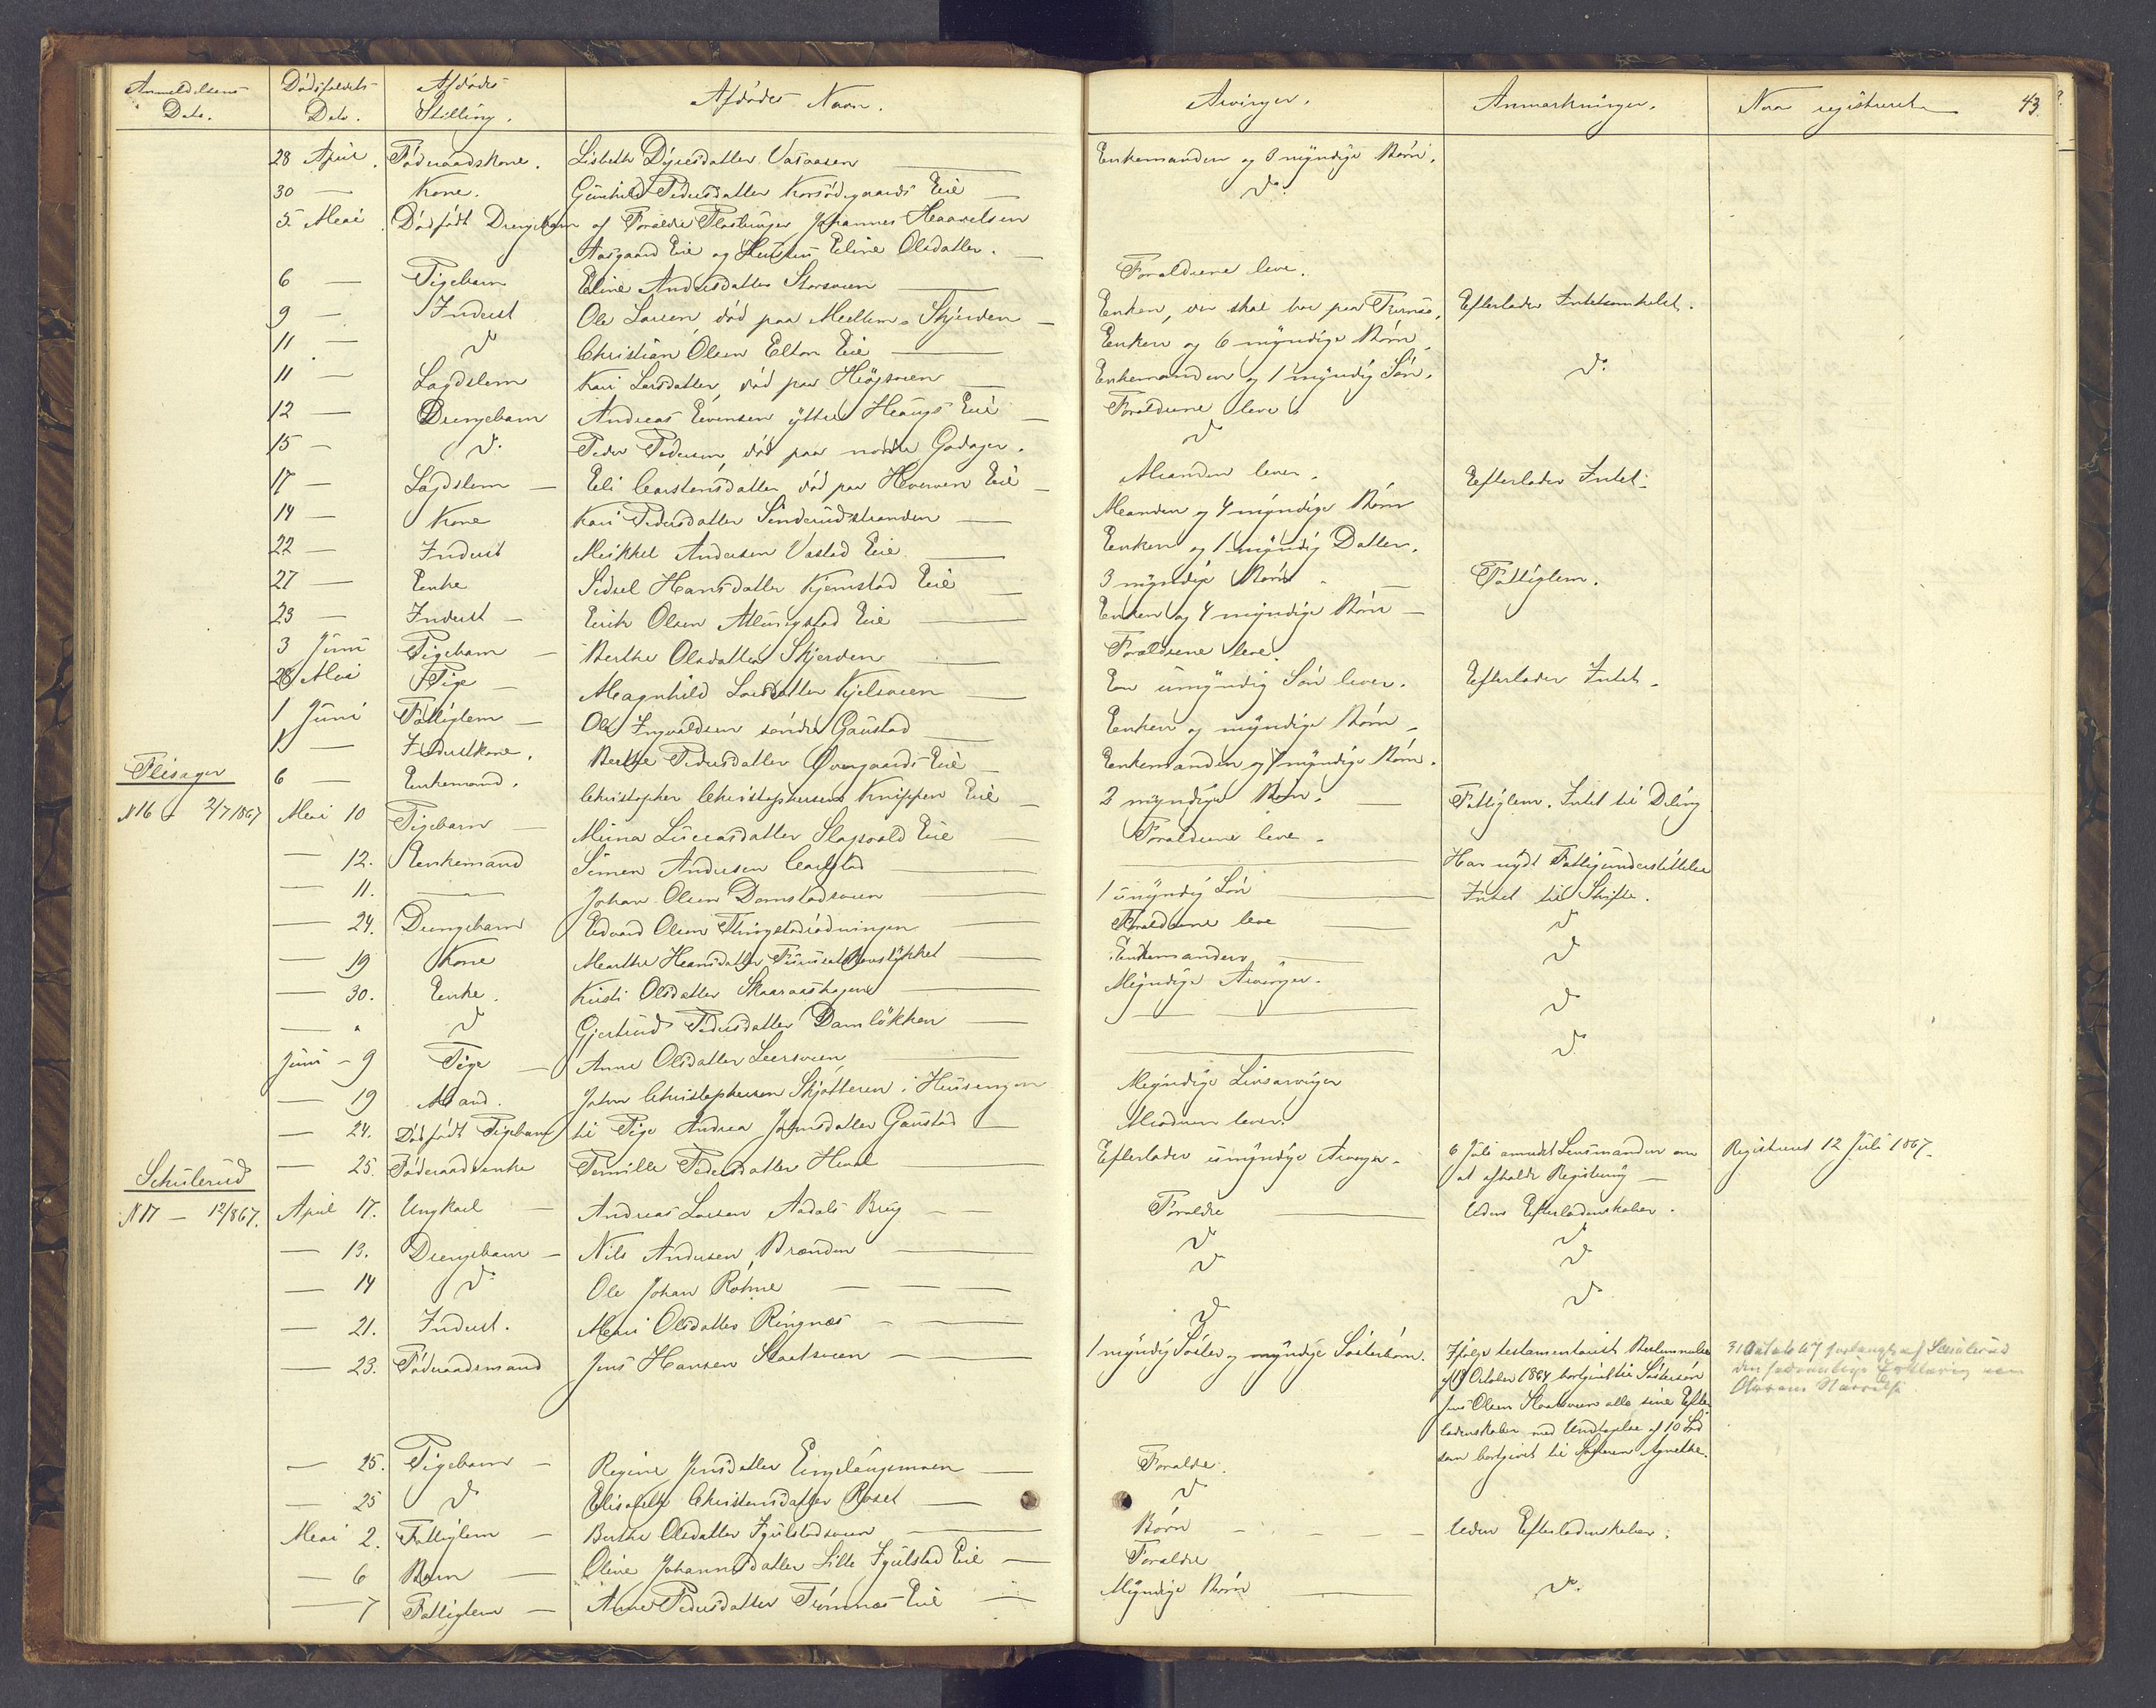 Anmeldelsens Dato. Dödsfaldets Dato. Afdödes Stilling. Afdödes Navn. Arvinger. Anmærkninger. Naar registreret 43.
28 April. Föderaadskone. Lisbeth Dyresdatter Vasaasen Enkemanden og 3 myndige Börn.
30 — Kone. Gunhild Pedersdatter Korsödegaards Eie — do
5 Mai Dödfödt Drengebarn af Forældre Johannes Haavelsen
Aasgaard Eie og Hustru Eline Olsdatter. — Forældrene leve.
6 — Pigebarn Eline Andersdatter Storsveen
9 — Inderst Ole Larsen, död paa Mellem Skjerden — Enken, der skal bo paa Efterlader Intetsomhelst.
11 — do Christian Olsen Elton Eie — Enken og 6 myndige Börn
11 — Lægdslem Kari Larsdatter, död paa Höijsveen — Enkemanden og 1 myndig Sön. do
12 — Drengebarn Andreas Evensen yttre Haugs Eie — Forældrene leve
15 — do Peder Pedersen, död paa nordre Godager. do
17 — Lægdslem — Eli Carstensdatter, död paa Hverven Eie — Manden lever. Efterlader Intet.
14 — Kone Kari Pedersdatter Sinderudstranden — Manden og 4 myndige Börn
22 — Inderst Mikkel Andersen Vestad Eie — Enken og 1 myndig Datter.
27 — Enke Sidsel Hansdatter Kjemstad Eie — 3 myndige Börn — Fattiglem.
23 — Inderst — Erik Olsen Almingstad Eie — Enken og 4 myndige Börn —
3 Juni Pigebarn — Berthe Olsdatter Skjerden — Forældrene leve
28 Mai Pige — Magnhild Larsdatter Kjelsveen — En umyndig Sön lever. Efterlader Intet.
1 Juni Fattiglem — Ole Ingvaldsen söndre Gaustad — Enken og myndige Börn —
1 — Inderstkone. Berthe Pedersdatter Övergaards Eie — Enkemanden og 4 myndige Börn.
Flisager 6 — Enkemand. Christopher Christophersen Knippen Eie — 2 myndige Börn. — Fattiglem. Intet til Deling
N16 2/7 1867 Mai 10 Pigebarn — Mina Lucasdatter Slagsvold Eie — Forældrene leve —
— 12. Enkemand Simen Andersen Carlstad — Har nydt Fattigunderstöttelse
— 11. — Johan Olsen Damstadsveen — 1 umyndig Sön — Intet til Skifte.
— 24. Drengebarn Edvard Olsen — Forældrene leve — do
— 19 Kone Marthe Hansdatter — Enkemanden — do
— 30. Enke. Kirsti Olsdatter Skaaraashagen — Myndige Arvinger. do
— " do Gjertrud Pedersdatter Damlökken — do
Juni — 9 Pige — Anne Olsdatter Leersveen —
— 19 Mand. Johan Christophersen Skjötteren i Husengen Myndige Livsarvinger
— 24. Dödfödt Pigebarn til Pige Andrea Johnsdatter Gaustad — Moderen lever.
Schulerud — 25. Föderaadsenke Pernille Pedersdatter Hval Efterlader umyndige Arvinger. 6 Juli anmodet Lensmanden om at afholde Registrering — Registreret 12 Juli 1867.
N17 — 12/867. April 17. Ungkarl — Andreas Larsen Aadals Brug — — Forældre — Uden Efterladenskaber.
— 13. Drengebarn — Nils Andersen Brænden — do do
— 14 do Ole Johan Röhne — do do
— 21. Inderst. Mari Olsdatter Ringnæs — do do
— 23. Föderaadsmand Jens Hansen Slaatsveen — 1 myndig Söster og myndige Sösterbörn. Ifölge testamentarisk Bestemmelse
af 19 October 1864 bortgivet til Söstersön
Jens Olsen Slaatsveen alle sine Efter
ladenskaber med Undtagelse af 10 Spd
som bortgivet til Agnethe.
31 October 67 forlangt af Schulerud
den fornödne Erklæring
— 25. Pigebarn — Regine Jensdatter — Forældre.
— 25 do Elisabeth Christensdatter Roset — do
Mai 2. Fattiglem — Berthe Olsdatter Igulstadsveen — Börn — Uden Efterladenskaber.
— 6 Barn — Oline Johannesdatter Lille Igulstad Eie — Forældre
— 7 Fattiglem — Anne Pedersdatter Fromnæs Eie — Myndige Börn — do